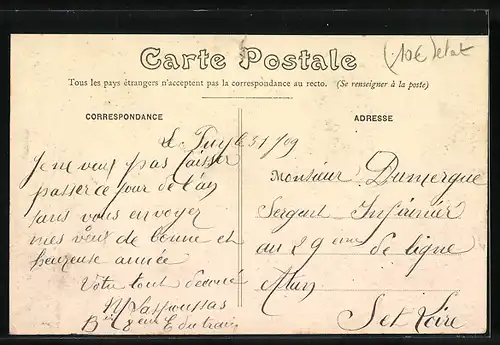 (10€) etat
Carte Postale
Tous les pays étrangers n'acceptent pas la correspondance au recto. (Se renseigner à la poste)
CORRESPONDANCE
Le Puy le 31/ /09
Je ne veux pas laisser
passer ce jour de l'an
sans vous envoyer
mes vœux de bonne et
heureuse année
Votre tout dévoué
ADRESSE
Monsieur Dumergue
Sergent Infirmier
au 29 eme de ligne
Autun
S et Loire